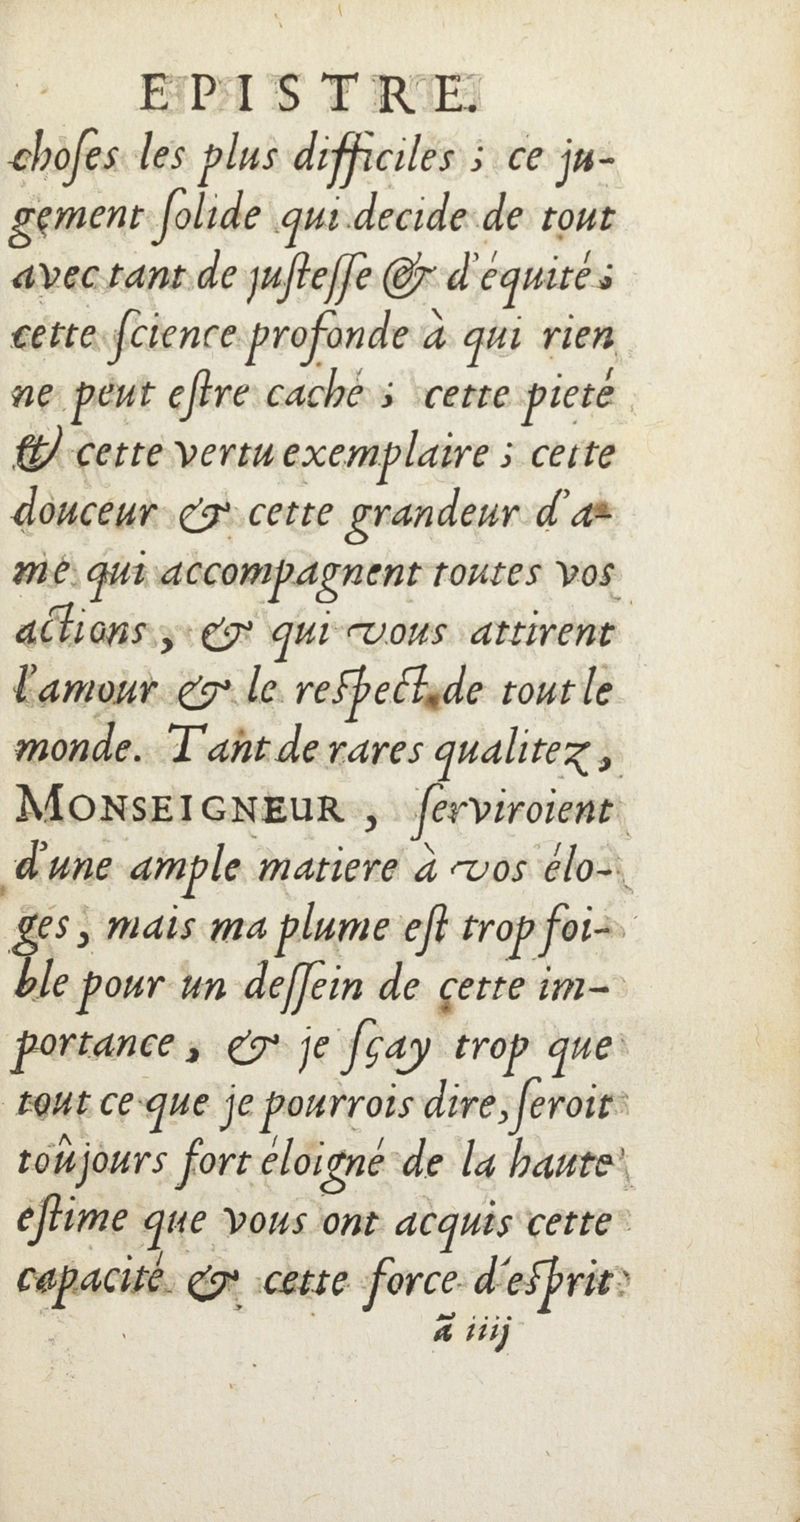 EPISTRE.
choſes les plus difficiles ; ce ju-
gement ſolide qui decide de tout
avec tant de juſteſſe & d'équité ;
cette ſcience profonde à qui rien
ne peut eſtre caché ; cette pieté
& cette vertu exemplaire ; cette
douceur & cette grandeur d'a-
me qui accompagnent toutes vos
actions , & qui vous attirent
l'amour & le reſpect de tout le
monde. Tant de rares qualitez ,
MONSEIGNEUR , ſerviroient
d'une ample matiere à vos élo-
ges , mais ma plume eſt trop foi-
ble pour un deſſein de cette im-
portance , & je ſçay trop que
tout ce que je pourrois dire, ſeroit
toûjours fort éloigné de la haute
eſtime que vous ont acquis cette
capacité & cette force d'eſprit
ã iiij